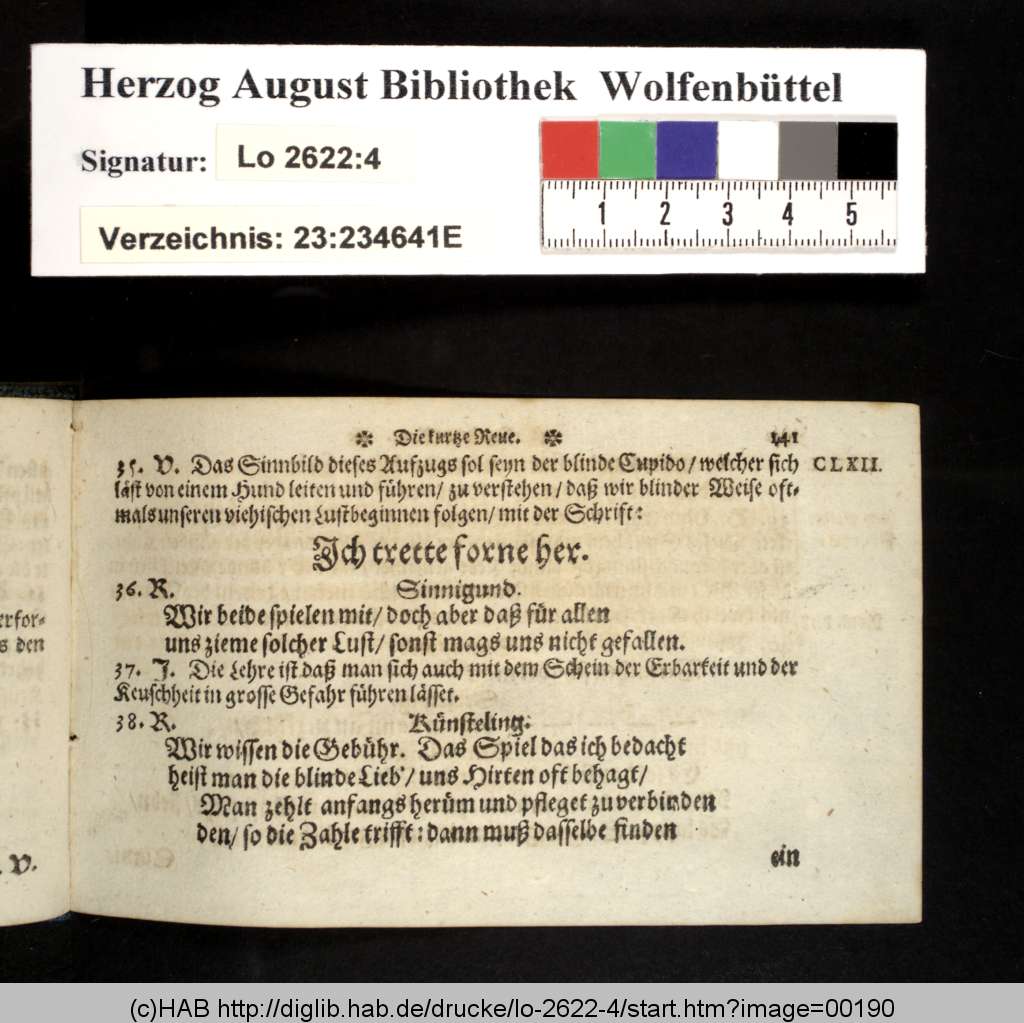 Herzog August Bibliothek Wolfenbüttel
Signatur: Lo 2622:4
Verzeichnis: 23:234641E
1 2 3 4 5
Die kurtze Reue. 141
35. V. Das Sinnbild dieses Aufzugs sol seyn der blinde Cupido / welcher sich CLXII.
läst von einem Hund leiten und führen / zu verstehen / daß wir blinder Weise oft-
mals unseren viehischen Lustbeginnen folgen / mit der Schrift:
Ich trette forne her.
36. R. Sinnigund.
Wir beide spielen mit / doch aber daß für allen
uns zieme solcher Lust / sonst mags uns nicht gefallen.
37. J. Die Lehre ist daß man sich auch mit dem Schein der Erbarkeit und der
Keuschheit in grosse Gefahr führen lässet.
38. R. Künsteling.
Wir wissen die Gebühr. Das Spiel das ich bedacht
heist man die blinde Lieb' / uns Hirten oft behagt /
Man zehlt anfangs herüm und pfleget zu verbinden
den / so die Zahle trifft: dann muß dasselbe finden
ein
erfor-
s den
. V.
(c)HAB http://diglib.hab.de/drucke/lo-2622-4/start.htm?image=00190